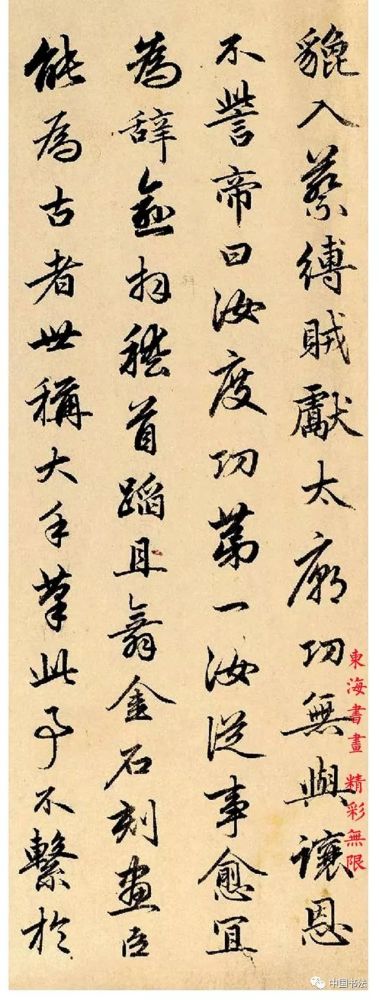 貔入蔡縛賊獻太廟功無與讓恩
不訾帝曰汝度功第一汝從事愈宜
為辭愈拜稽首蹈且舞金石刻畫臣
能為古者世稱大手筆此事不繫於
東海書畫 精彩無限
中国书法